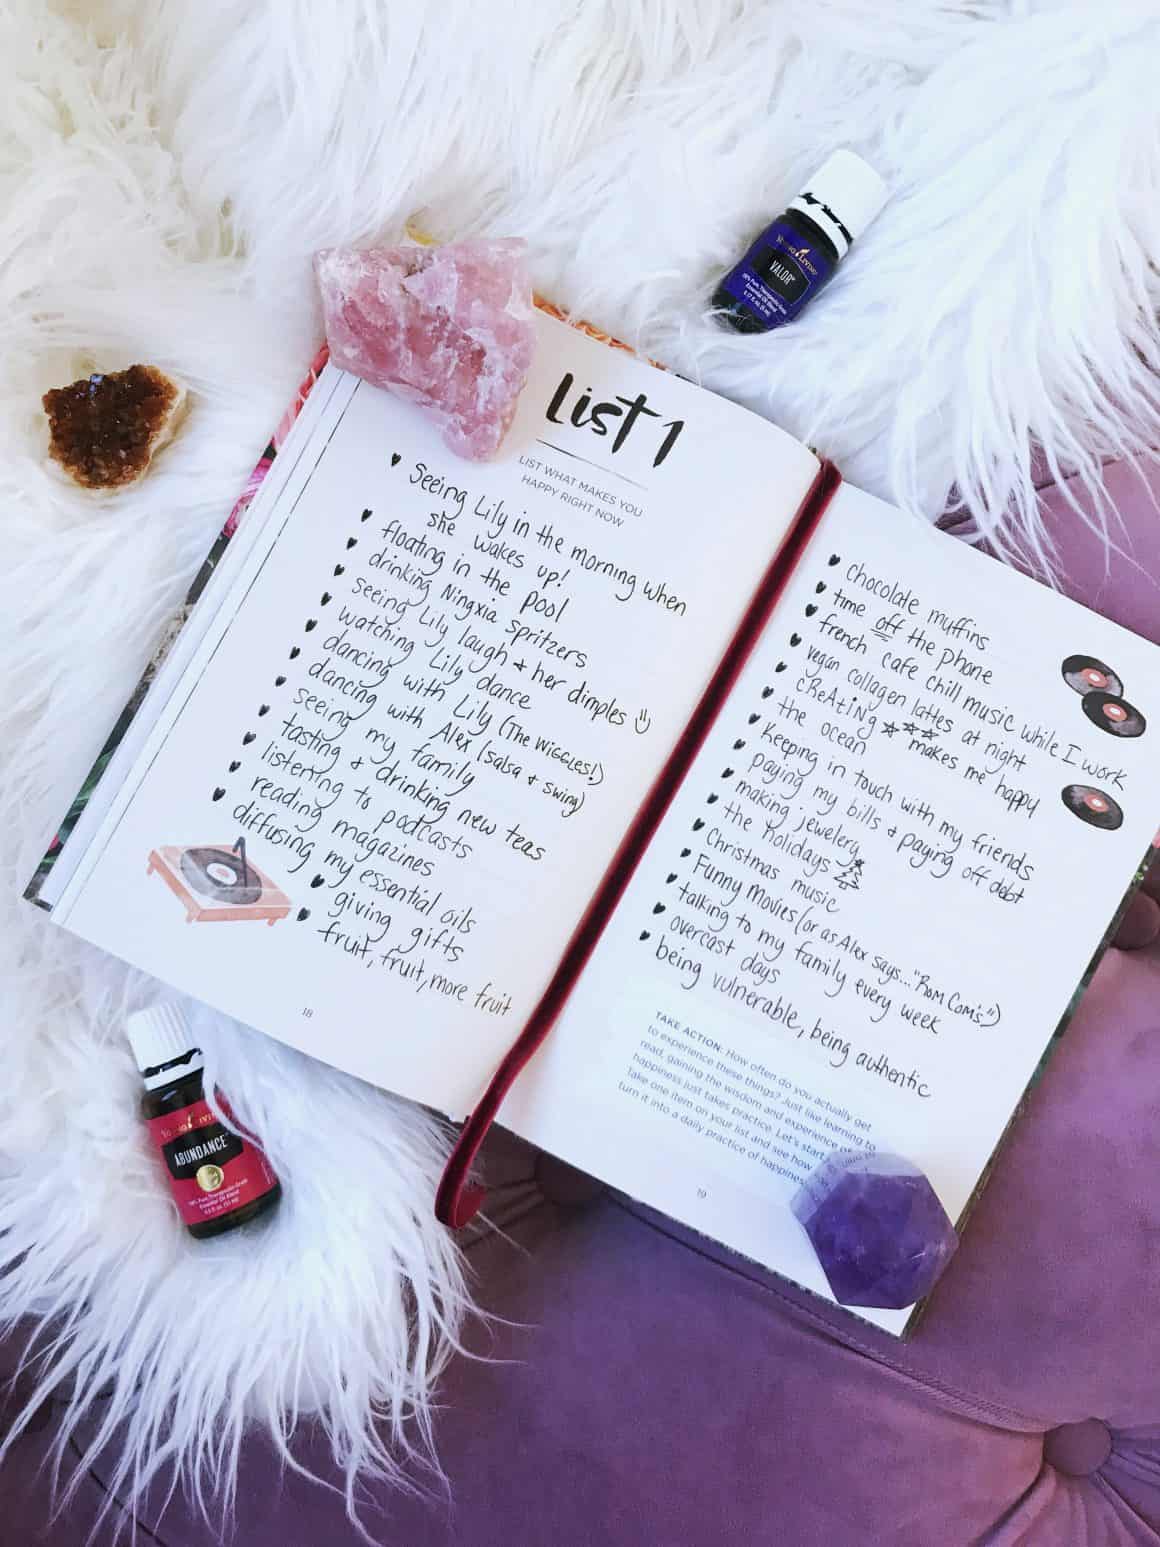 YOUNG LIVING
VALOR™
100% Pure, Therapeutic-Grade
Essential Oil Blend
List 1
LIST WHAT MAKES YOU
HAPPY RIGHT NOW
Seeing Lily in the morning when
she wakes up!
floating in the pool
drinking Ningxia spritzers
seeing Lily laugh & her dimples :)
watching Lily dance
dancing with Lily (The Wiggles!)
dancing with Alex (salsa & swing)
seeing my family
tasting & drinking new teas
listening to podcasts
reading magazines
diffusing my essential oils
giving gifts
fruit, fruit, more fruit
18
chocolate muffins
time off the phone
french cafe chill music while I work
vegan collagen lattes at night
cReAtiNg makes me happy
the ocean
keeping in touch with my friends
paying my bills & paying off debt
making jewelery
the holidays
Christmas music
Funny movies (or as Alex says... "Rom Com's")
talking to my family every week
overcast days
being vulnerable, being authentic
TAKE ACTION: How often do you actually get
to experience these things? Just like learning to
read, gaining the wisdom and experience of
happiness just takes practice. Let's start
Take one item on your list and see how
turn it into a daily practice of happiness
19
YOUNG LIVING
ABUNDANCE™
100% Pure, Therapeutic-Grade
Essential Oil Blend